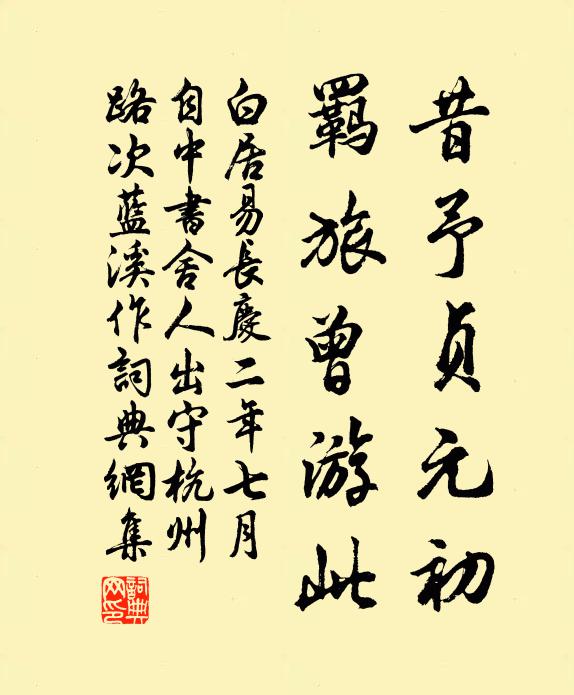 昔予貞元初
羈旅曾游此
白居易長慶二年七月
自中書舍人出守杭州
路次藍溪作詞典網集
詞典
网印